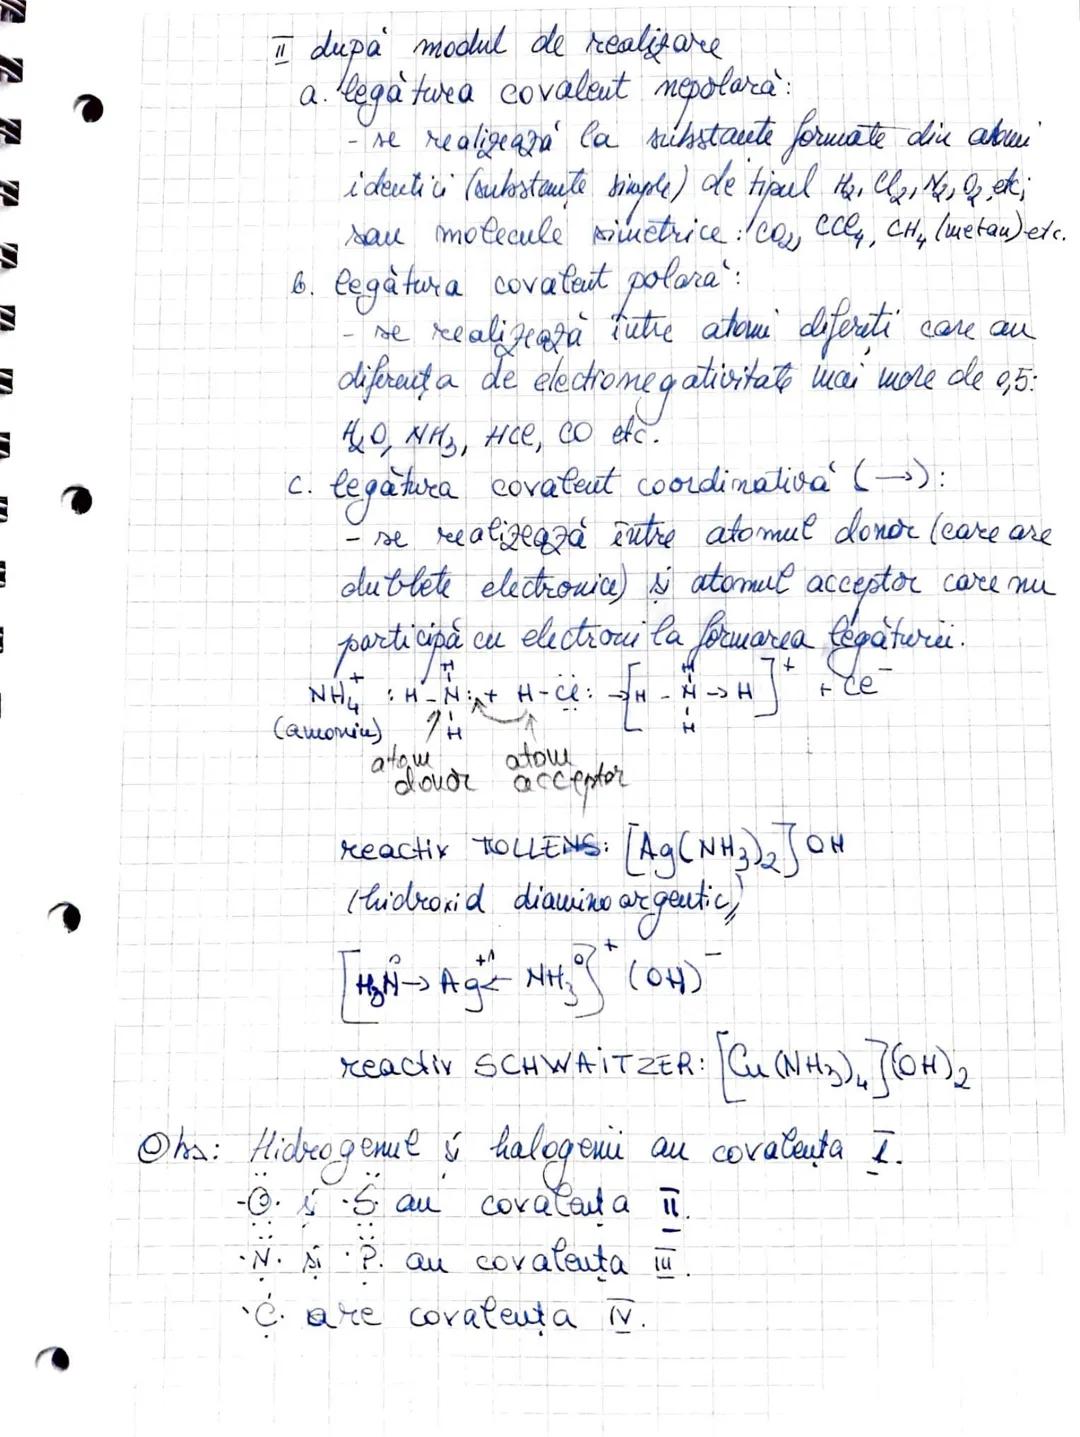 II după modul de realizare
a. legătura covalent nepolară:
- se realizează la substante formate din atomi
identici (substanțe simple) de tipul H₂, Cl₂, N₂, O₂, etc;
sau molecule simetrice: CO₂, CCl₄, CH₄ (metan) etc.
b. legătura covalent polară:
- se realizează între atomi diferiți care au
diferența de electronegativitate mai mare de 0,5:
H₂O, NH₃, HCl, CO etc.
c. legătura covalent coordinativă (→):
- se realizează între atomul donor (care are
dublete electronice) și atomul acceptor care nu
participă cu electroni la formarea legăturii.
H H
NH₄⁺ : H - N: + H - Cl: → [H - N → H]⁺ + Cl⁻
(amoniu) H H
atom donor atom acceptor
reactiv TOLLENS: [Ag(NH₃)₂]OH
(hidroxid diamino argentic)
[H₃N⁰ → Ag⁺¹ ← NH₃⁰]⁺ (OH)⁻
reactiv SCHWAITZER: [Cu(NH₃)₄](OH)₂
Obs: Hidrogenul și halogenii au covalența I.
·O· și ·S· au covalența II.
·N· și ·P· au covalența III.
·C· are covalența IV.